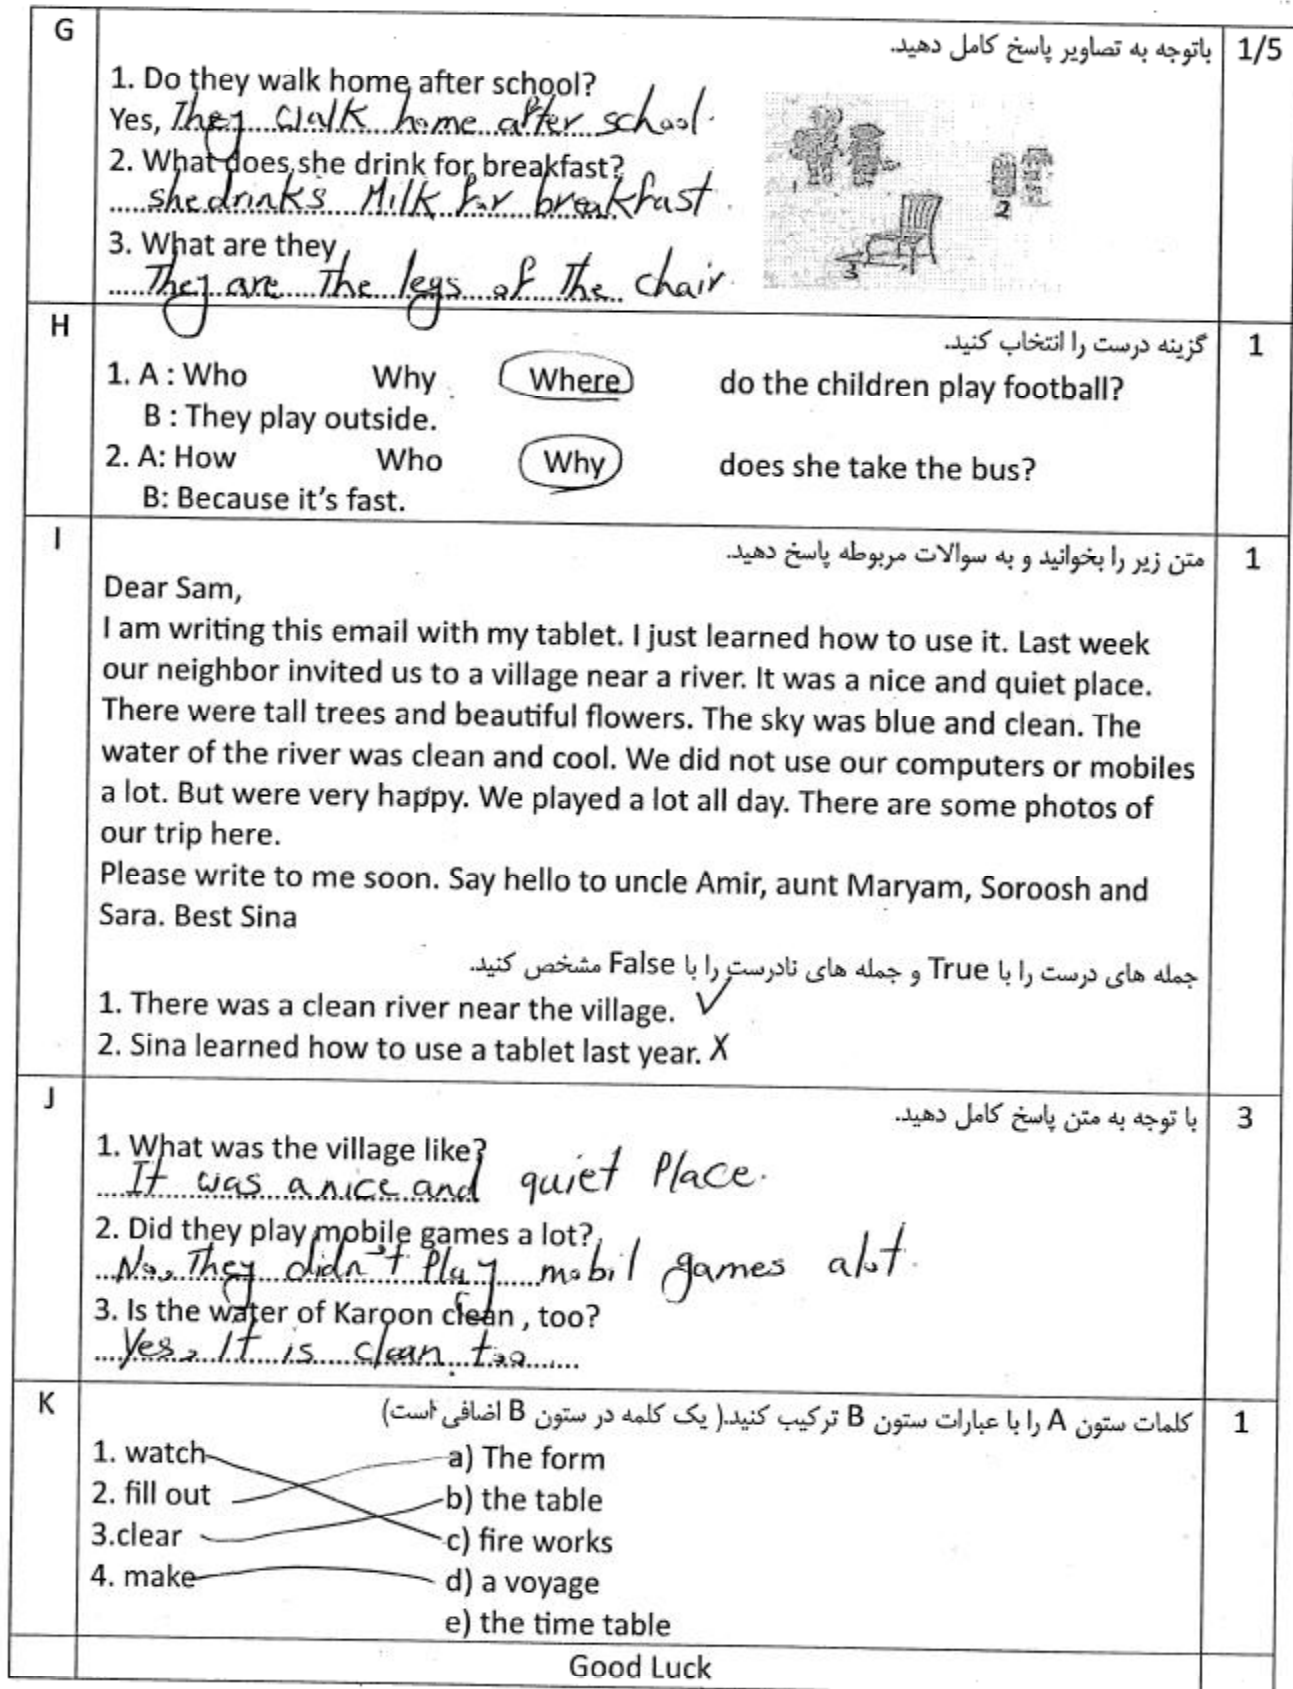 G
باتوجه به تصاویر پاسخ کامل دهید.
1/5
1. Do they walk home after school?
Yes, They walk home after school.
2. What does she drink for breakfast?
she drinks Milk for breakfast.
3. What are they
They are The legs of The chair.
1
2
3
H
گزینه درست را انتخاب کنید.
1
1. A : Who Why Where do the children play football?
B : They play outside.
2. A: How Who Why does she take the bus?
B: Because it’s fast.
I
متن زیر را بخوانید و به سوالات مربوطه پاسخ دهید.
1
Dear Sam,
I am writing this email with my tablet. I just learned how to use it. Last week
our neighbor invited us to a village near a river. It was a nice and quiet place.
There were tall trees and beautiful flowers. The sky was blue and clean. The
water of the river was clean and cool. We did not use our computers or mobiles
a lot. But were very happy. We played a lot all day. There are some photos of
our trip here.
Please write to me soon. Say hello to uncle Amir, aunt Maryam, Soroosh and
Sara. Best Sina
جمله های درست را با True و جمله های نادرست را با False مشخص کنید.
1. There was a clean river near the village. ✓
2. Sina learned how to use a tablet last year. X
J
با توجه به متن پاسخ کامل دهید.
3
1. What was the village like?
It was a nice and quiet Place.
2. Did they play mobile games a lot?
No, They didn't Play mobil games alot.
3. Is the water of Karoon clean , too?
Yes, It is clean too
K
کلمات ستون A را با عبارات ستون B ترکیب کنید.( یک کلمه در ستون B اضافی است)
1
1. watch a) The form
2. fill out b) the table
3.clear c) fire works
4. make d) a voyage
e) the time table
Good Luck